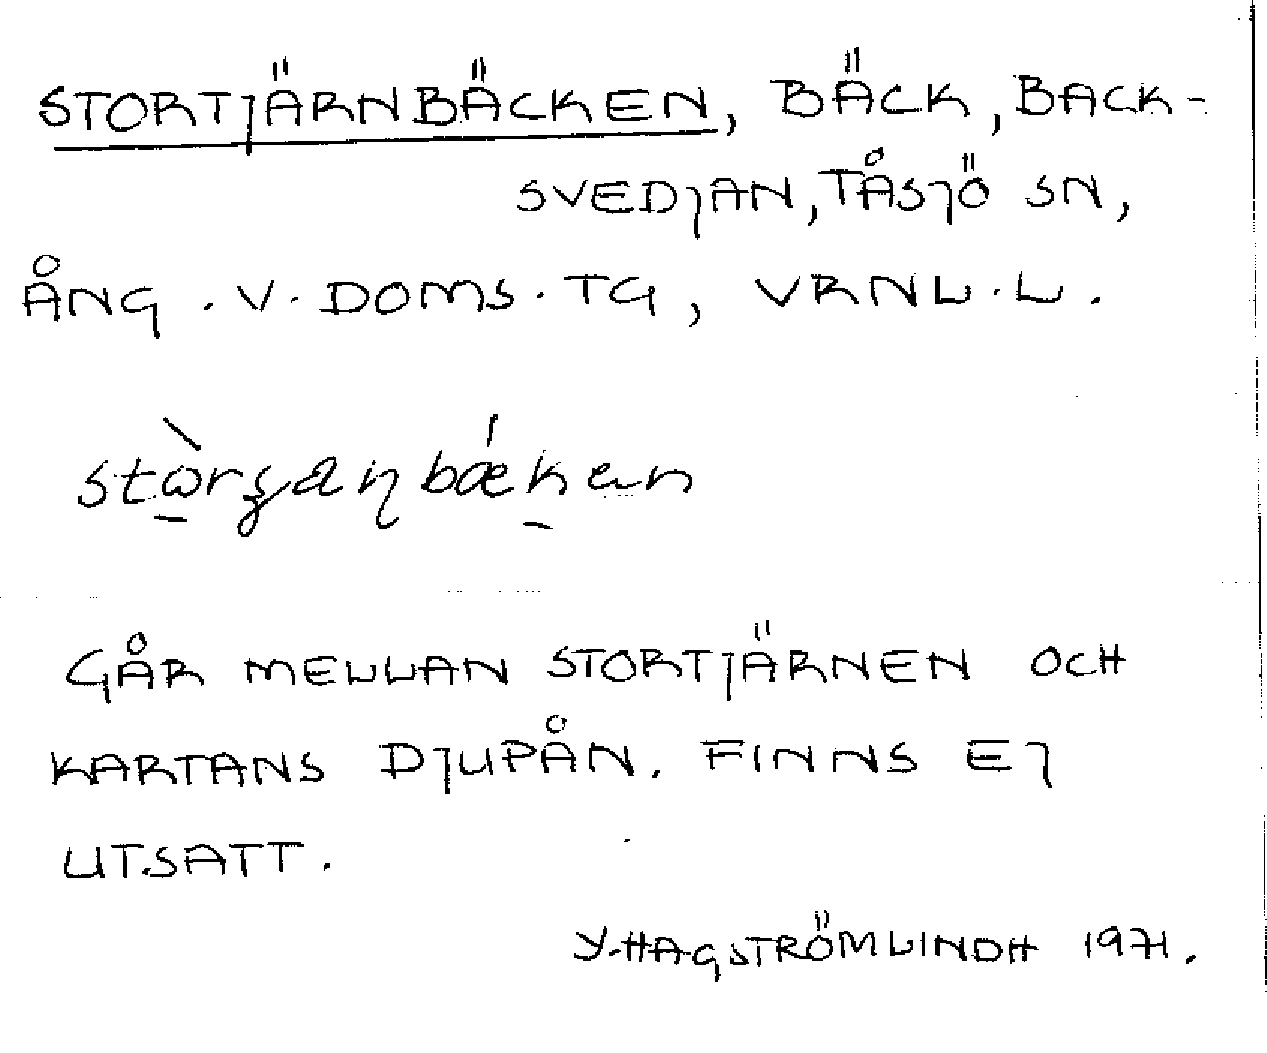 STORTJÄRNBÄCKEN, BÄCK, BACK-
SVEDJAN, TÅSJÖ SN,
ÅNG. V. DOMS. TG, VRNL. L.
GÅR MELLAN STORTJÄRNEN OCH
KARTANS DJUPÅN. FINNS EJ
UTSATT.
Y. HAGSTRÖMLINDH 1971.